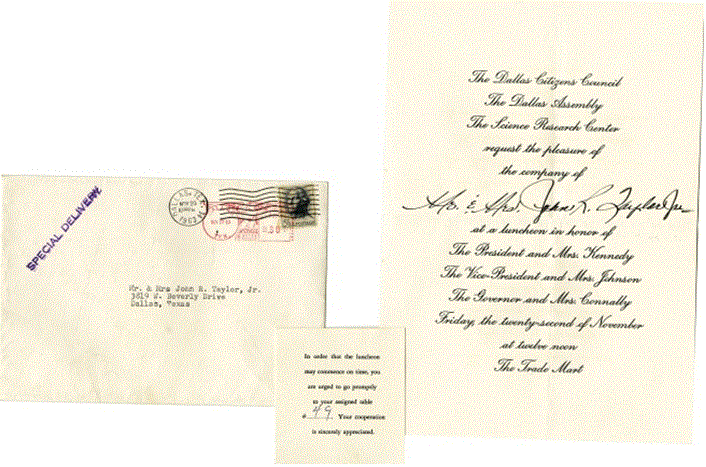 SPECIAL DELIVERY
DALLAS, TEX.
Mr. & Mrs John R. Taylor, Jr.
3819 W. Beverly Drive
Dallas, Texas
In order that the luncheon
may commence on time, you
are urged to go promptly
to your assigned table
# 49 Your cooperation
is sincerely appreciated.
The Dallas Citizens Council
The Dallas Assembly
The Science Research Center
request the pleasure of
the company of
Mr. & Mrs. John R. Taylor Jr.
at a luncheon in honor of
The President and Mrs. Kennedy
The Vice-President and Mrs. Johnson
The Governor and Mrs. Connally
Friday, the twenty-second of November
at twelve noon
The Trade Mart